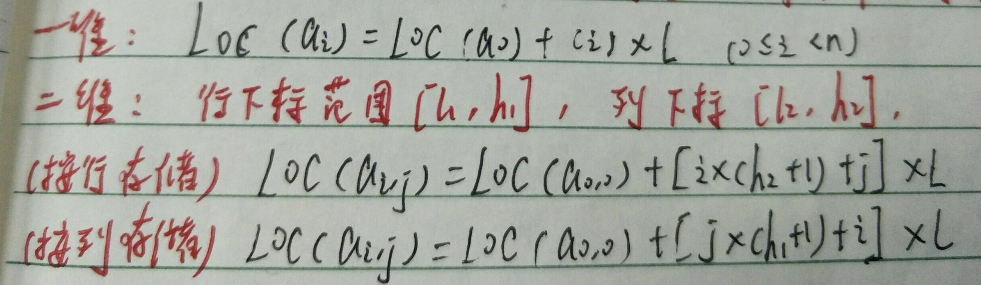 一维: LOC(ai)=LOC(a0)+(i)×L (0≤i<n)
二维: 行下标范围[l1,h1],列下标[l2,h2].
(按行存储) LOC(ai,j)=LOC(a0,0)+[i×(h2+1)+j]×L
(按列存储) LOC(ai,j)=LOC(a0,0)+[j×(h1+1)+i]×L